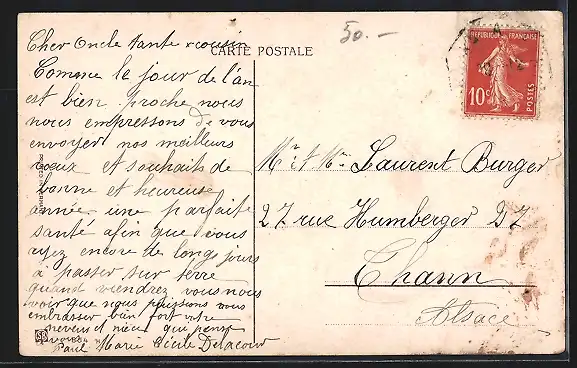 CARTE POSTALE
50.-
RÉPUBLIQUE FRANÇAISE
10c
POSTES
Cher Oncle tante x cousin
Comme le jour de l'an
est bien proche nous
nous empressons de vous
envoyer nos meilleurs
voeux et souhaits de
bonne et heureuse
année une parfaite
santé afin que vous
ayez encore de longs jours
a passer sur terre
quand viendrez vous nous
voir que nous puissions vous
embrasser bien fort votre
neveu et nièce qui pense
Paul Marie Cécile Delacour
Mr et Mme Laurent Burger
27 rue Humberger 27
Thann
Alsace